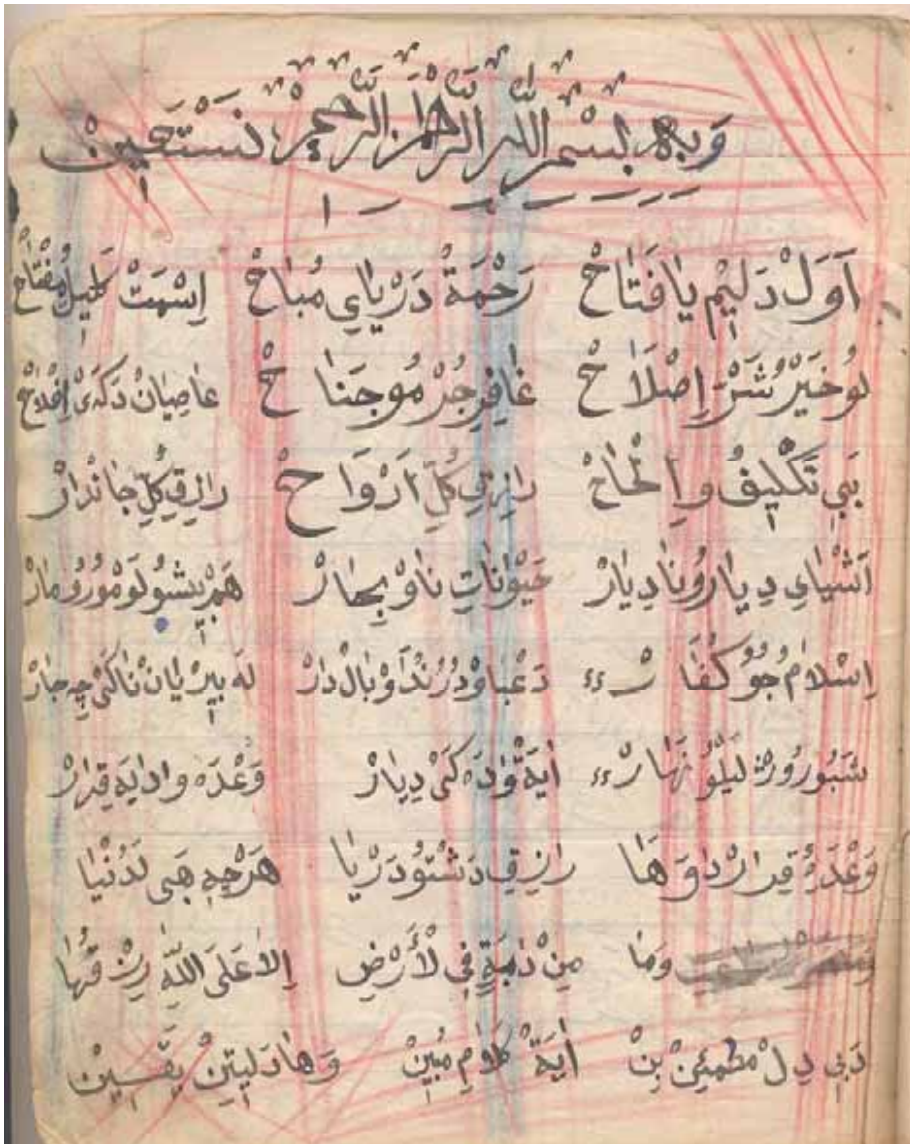 وَبِهِ بِسْمِ اللهِ الرَّحْمٰنِ الرَّحِيْمِ نَسْتَعِيْنْ
اَوَلْ دَلِيْم يافَتاحْ رَحْمَةْ دَرْيايِ مُباحْ اِسْمَتْ كَلِيلُ مِفْتاحْ
بُوخَيْرُ شَرْ اِصْلَاحْ غافِرِ جُرْمُو جَناحْ عاصِيانْ دَكَەىْ اِفْلاحْ
بَبِى تَكْلِيفُ و اِلْحاحْ رازِقِ كُلِّ اَرْوَاحْ رازِقِ كُلِّ جاندارْ
اَشْياءِ دِيارُو نادِيارْ حَيْوَاناتِ ناوْ بِحارْ هَمْ مِيشُولَو مُورُو مارْ
اِسْلامُ جُو كُفَّارْ دَعْباوْ دُرُنْدَاوْ بالْدارْ لَە بِيرْيانْ ناكَىْ چِ جارْ
شَبُورُورْ لَيْلُو نَهارْ ايَةْ وادَەكَىْ دِيارْ وَعْدَە وادايَە قِرارْ
وَعْدَەُ قِرارْ دَوَها رازِقِ دَشْتُو دَرْيا هَرْچِە هَبِى لَدُنْيا
وَما مِنْ دٰابَّةٍ فِي لْأَرْضِ اِلاّ عَلَى اللّٰهِ رِزْقُها
دَبِى دِلْ مطْمَئِنْ بِنْ ايَةْ كَلامِ مُبِيْنْ وَهادَلِيتِنْ يَقَسِينْ